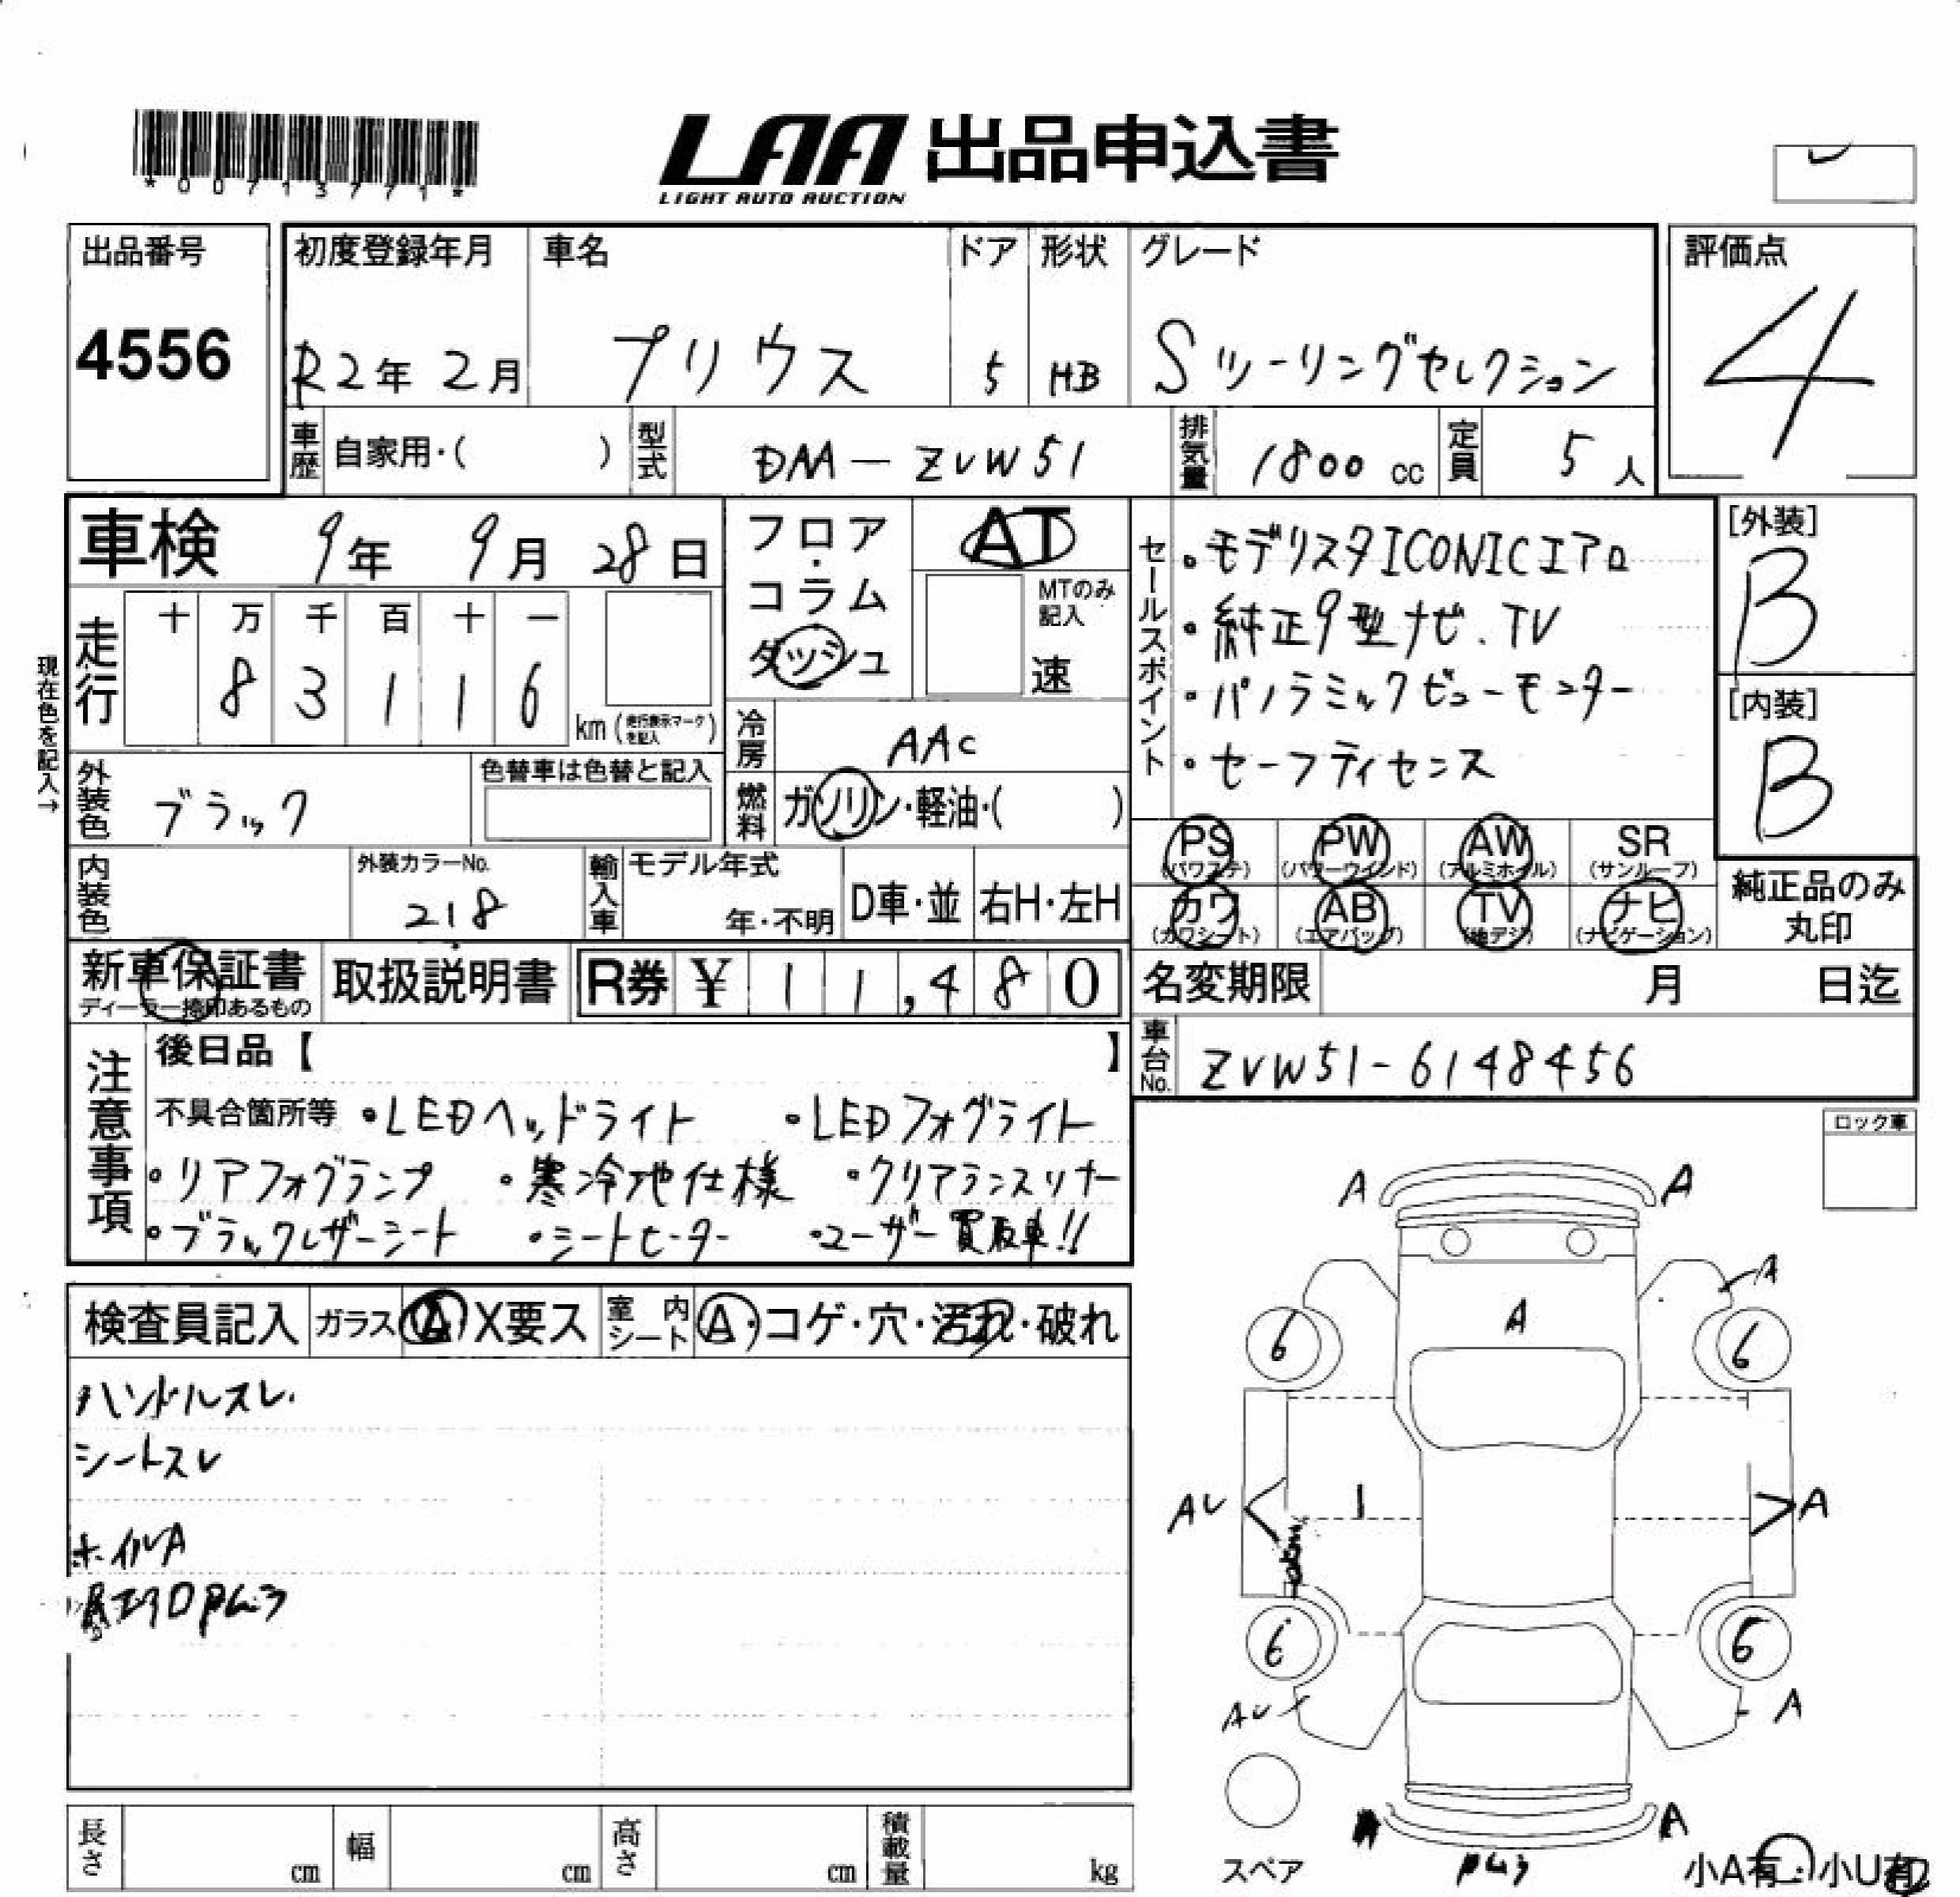 *00713771*
LAA 出品申込書
LIGHT AUTO AUCTION
出品番号
4556
初度登録年月
R2年 2月
車名
プリウス
ドア
5
形状
HB
グレード
Sツーリングセレクション
評価点
4
車歴 自家用・( )
型式 DAA-ZVW51
排気量 1800 cc
定員 5 人
車検 9年 9月 28日
現在色を記入→
走行 十 万 千 百 十 一
8 3 1 1 6
km (走行表示マークを記入)
フロア・コラム
ダッシュ
AT
MTのみ記入
速
冷房 AAC
燃料 ガソリン・軽油・( )
外装色 ブラック
色替車は色替と記入
内装色
外装カラーNo.
218
輸入車 モデル年式
年・不明
D車・並
右H・左H
セールスポイント
・モデリスタICONICエアロ
・純正9型ナビ.TV
・パノラミックビューモニター
・セーフティセンス
[外装]
B
[内装]
B
PS (パワステ)
PW (パワーウインド)
AW (アルミホイル)
SR (サンルーフ)
カワ (カワシート)
AB (エアバッグ)
TV (地デジ)
ナビ (ナビゲーション)
純正品のみ
丸印
新車保証書
ディーラー捺印あるもの
取扱説明書
R券 ¥ 11,480
名変期限 月 日迄
車台No. ZVW51-6148456
注意事項
後日品【 】
不具合箇所等 ・LEDヘッドライト ・LEDフォグライト
・リアフォグランプ ・寒冷地仕様 ・クリアランスソナー
・ブラックレザーシート ・シートヒーター ・ユーザー買取車!!
ロック車
検査員記入 ガラス A X要ス 室内シート A・コゲ・穴・汚れ・破れ
ハンドルスレ
シートスレ
ホイルA
A A
A
A
6 6
AU A
6 6
AU A
A
スペア
小A有・小U有
長さ cm 幅 cm 高さ cm 積載量 kg